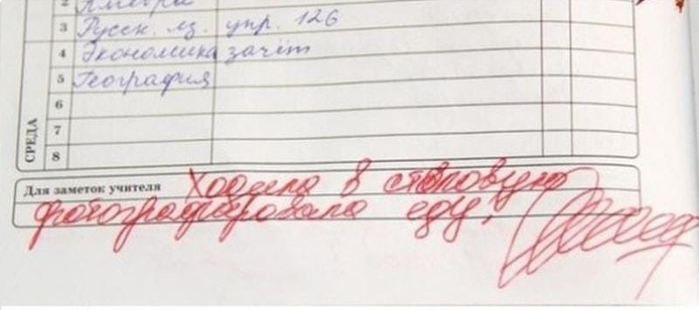 2 Алгебра
3 Русск. яз. упр. 126
4 Экономика зачёт
5 География
6
7
8
СРЕДА
Для заметок учителя Ходила в столовую
фотографировала еду!